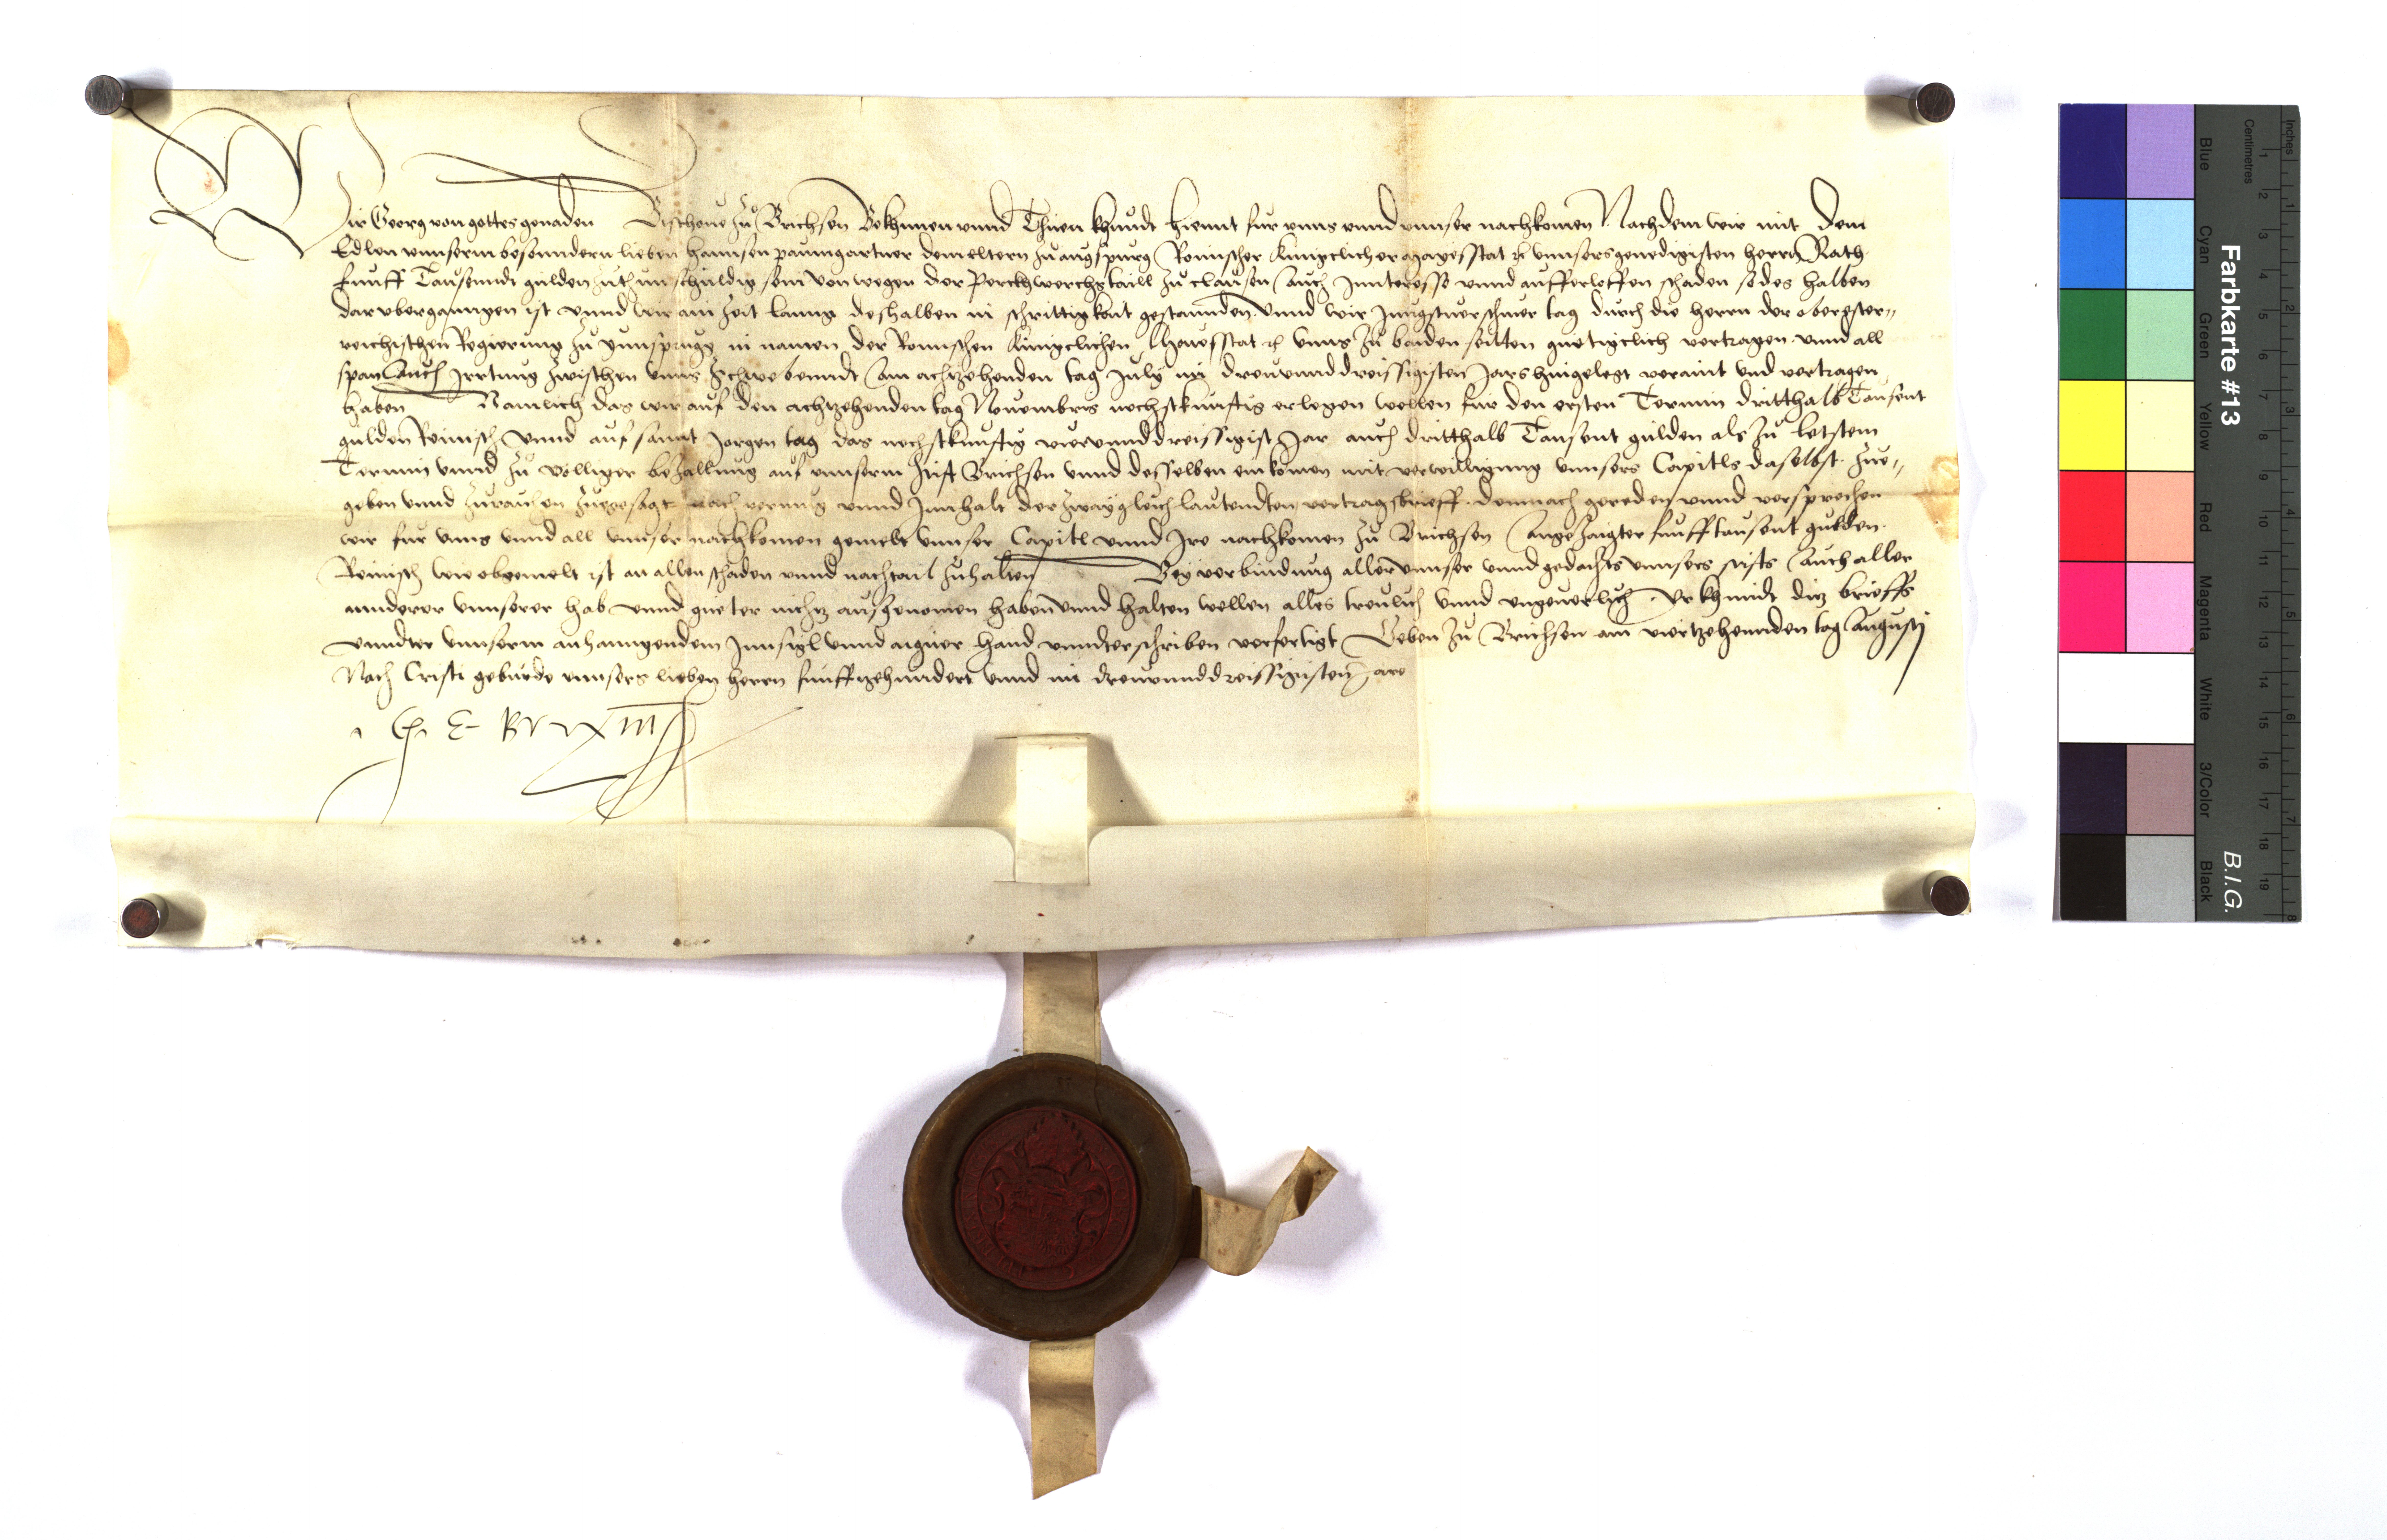 Wir Georg von gottes genaden Bischoue zů Brichsen Bekhennen vnnd Thuen khundt hiemit für vnns vnnd vnnser nachkomen Nachdem wir mit dem
Edlen vnnserm besonndern lieben Hannsen paumgartner dem eltern zu augspurg Römischer Kunigclicher Mayesstat ꝛc vnnsers genedigisten herrn Rath
funff Tausenndt gulden zuthun schuldig sein von wegen der Perckhwerchstaill zu clausen Auch Innteresse vnnd aufferloffen schaden so des halben
darvberganngen ist vnnd wir ain zeit lanng deshalben in schrittigkeit gestannden Vnnd wir Jungstuerschiner tag durch die herrn der oberoster„
reichischen Regierung zu ynnsprugg in namen der Romischen Kunigclichen Mayesstat ꝛc vnns zu baiden seitten guetigclich vertragen vnnd all
span Auch Irrtung zwischen vnns Schwebenndt Am achtzehenden tag July im dreuvnnddreissigisten Jars hingelegt veraint vnd vertragen
haben Namlich das wir auf den achtzehenden tag Nouembris nechstkunftig erlegen wellen für den ersten Termin dritthalb Tausent
gulden Reinisch Vnnd auf sannt Jorgen tag das nechstkunftig viervnnddreissigist Jar auch dritthalb Tausent gulden als zu letstem
Termin vnnd zů volliger bezallung auf vnnserm Stift Brichsen vnnd desselben einkomen mit verwilligung vnnsers Capitls daselbst zue„
geben vnnd zuraichen zuegesagt nach vermug vnnd Innhalt der zway gleich lautendten vertragsbrieff. demnach gereden vnnd versprechen
wir für vnns vnnd all vnnser nachkomen gemelt vnnser Capitl vnnd Ire nachkomen zu Brichsen Angezaigter funff tausent gulden
Reinisch wie obgemelt ist an allen schaden vnnd nachtail zuhalten Bey verbindung aller vnnser vnnd gedachts vnnsers stifts Auch aller
annderer vnnserer hab vnnd gueter nichtz ausgenomen haben vnnd halten wellen alles treulich vnnd vngeuerlich. Vrkhundt ditz brieffs
vnndter vnnserm anhanngendem Innsigl vnnd aigner hand vnnderschriben verfertigt Geben zu Brichsen am viertzehennden tag Augusti
Nach Cristi geburde vnnsers lieben herrn funfftzehundert vnnd im dreuvnnddreissigisten Jare
G. E. Brixin
Farbkarte #13
B.I.G.
Inches
Centimetres
Blue
Cyan
Green
Yellow
Red
Magenta
White
3/Color
Black
1 2 3 4 5 6 7 8 9 10 11 12 13 14 15 16 17 18 19
1 2 3 4 5 6 7 8